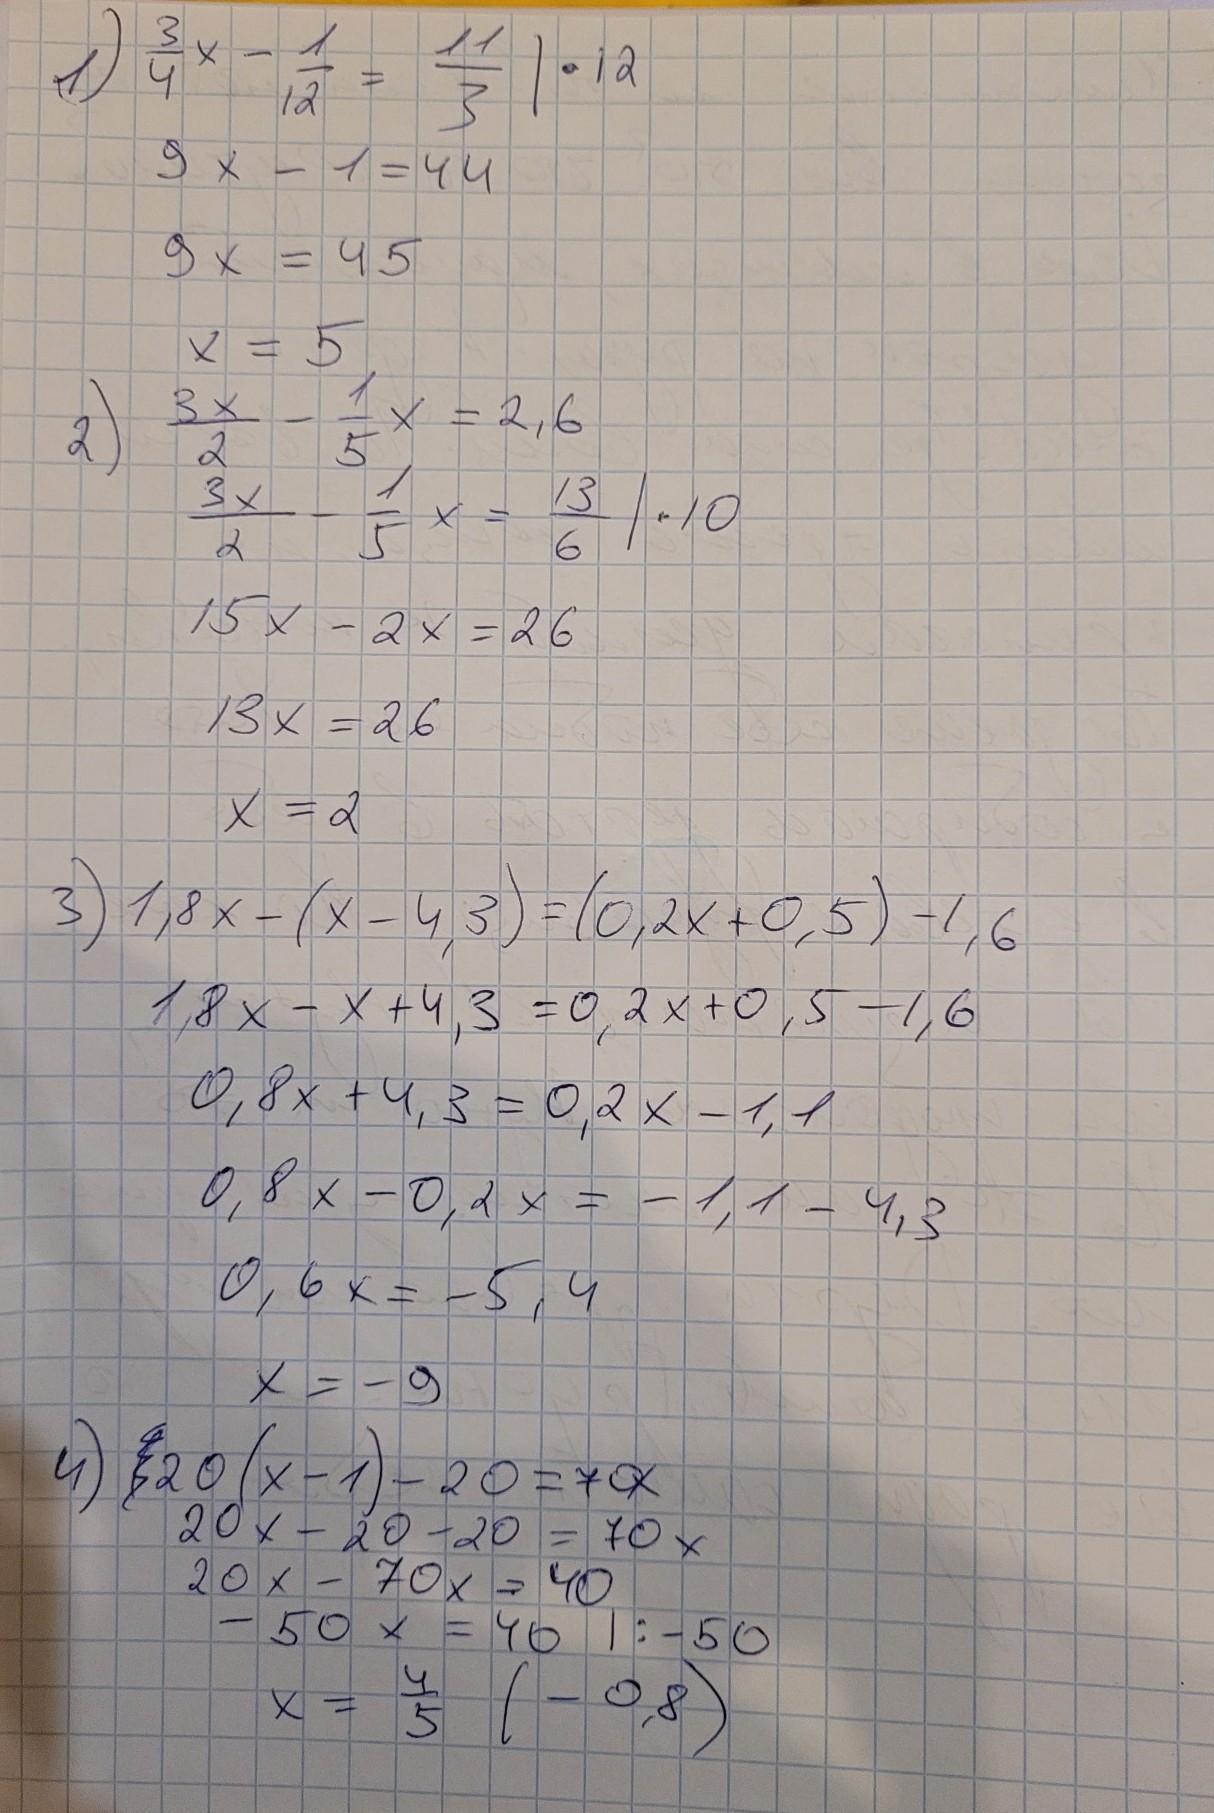 1) 3/4 x - 1/12 = 11/3 | • 12
9x - 1 = 44
9x = 45
x = 5
2) 3x/2 - 1/5 x = 2,6
3x/2 - 1/5 x = 13/6 | • 10
15x - 2x = 26
13x = 26
x = 2
3) 1,8x - (x - 4,3) = (0,2x + 0,5) - 1,6
1,8x - x + 4,3 = 0,2x + 0,5 - 1,6
0,8x + 4,3 = 0,2x - 1,1
0,8x - 0,2x = -1,1 - 4,3
0,6x = -5,4
x = -9
4) 20(x - 1) - 20 = 70x
20x - 20 - 20 = 70x
20x - 70x = 40
-50x = 40 | : -50
x = 4/5 (-0,8)